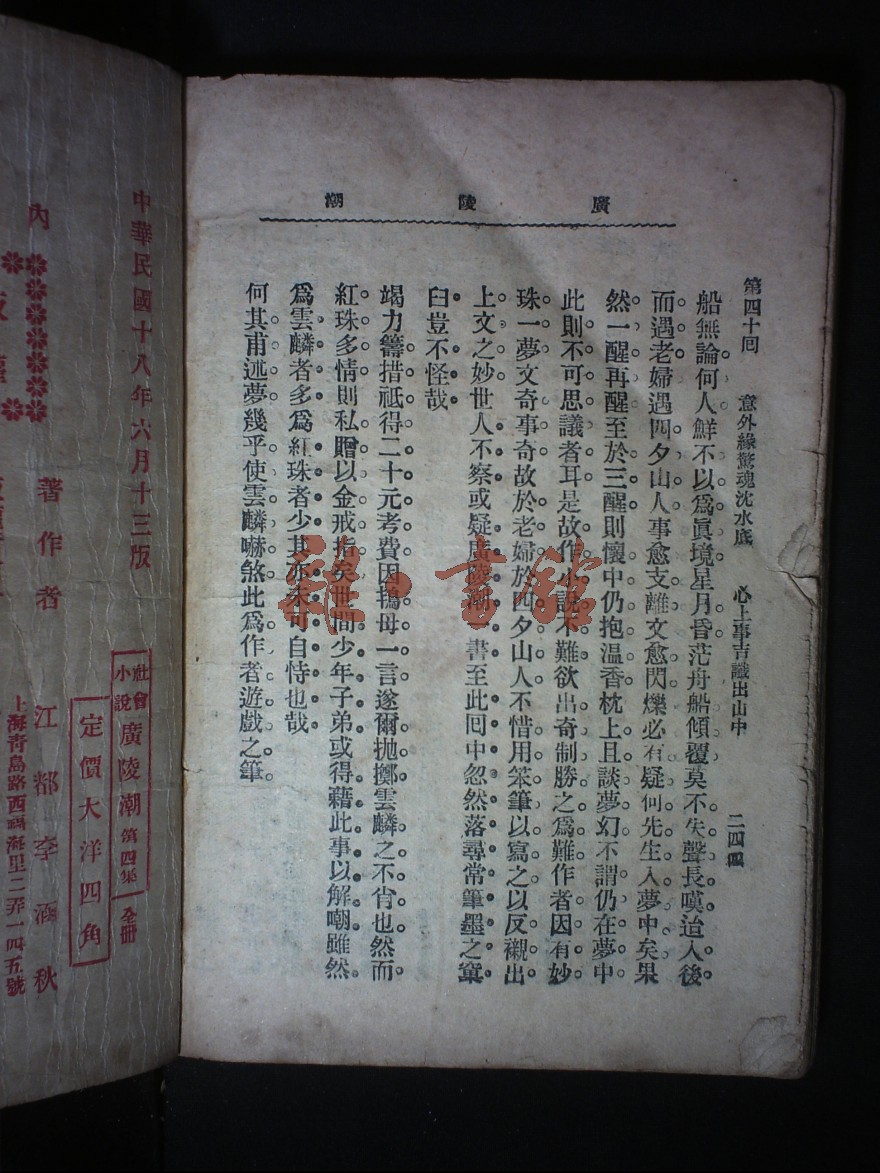 廣陵潮
第四十回 意外緣驚魂沈水底 心上事吉讖出山中 二四四
船無論何人鮮不以爲眞境星月昏茫舟船傾覆莫不失聲長嘆迨入後
而遇老婦遇四夕山人事愈支離文愈閃爍必有疑何先生入夢中矣果
然一醒再醒至於三醒則懷中仍抱溫香枕上且談夢幻不謂仍在夢中
此則不可思議者耳是故作小說不難欲出奇制勝之爲難作者因有妙
珠一夢文奇事奇故於老婦於四夕山人不惜用笨筆以寫之以反襯出
上文之妙世人不察或疑廣陵潮一書至此回中忽然落尋常筆墨之窠
臼豈不怪哉
竭力籌措祇得二十元考費因鴇母一言遂爾抛擲雲麟之不肖也然而
紅珠多情則私贈以金戒指矣世間少年子弟或得藉此事以解嘲雖然
爲雲麟者多爲紅珠者少其亦未可自恃也哉
何其甫述夢幾乎使雲麟嚇煞此爲作者遊戲之筆
中華民國十八年六月十三版
社會小說 廣陵潮 第四集 全冊
定價大洋四角
著作者 江都李涵秋
上海靑島路西福海里二弄一四五號
內